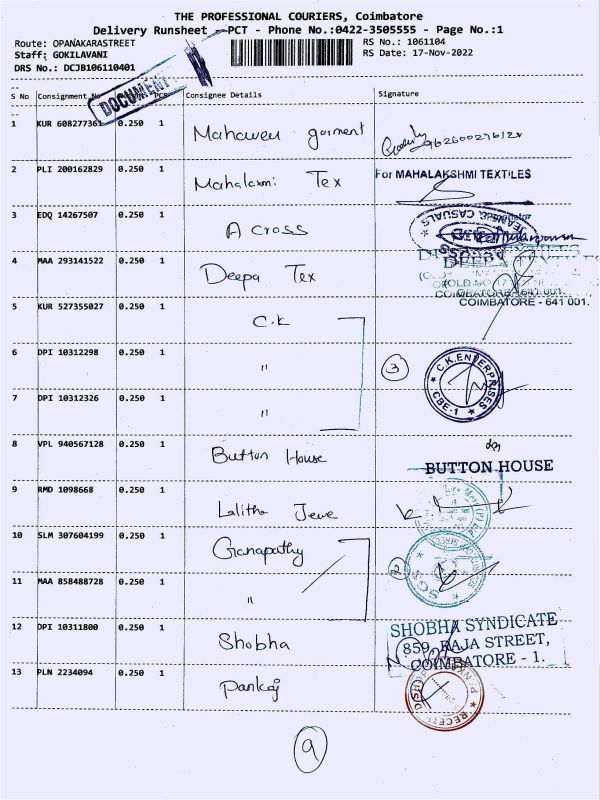 THE PROFESSIONAL COURIERS, Coimbatore
Delivery Runsheet - PCT - Phone No.:0422-3505555 - Page No.:1
Route: OPANAKARASTREET
RS No.: 1061104
Staff: GOKILAVANI
RS Date: 17-Nov-2022
DRS No.: DCJB106110401
DOCUMENT
S No Consignment No PCS Consignee Details Signature
1 KUR 608277361 0.250 1 Mahaveer garment
2 PLI 200162829 0.250 1 Mahalaxmi Tex For MAHALAKSHMI TEXTILES
3 EDQ 14267507 0.250 1 A cross JEANS & CASUALS
4 MAA 293141522 0.250 1 Deepa Tex
COIMBATORE - 641 001.
5 KUR 527355027 0.250 1 C.K
6 DPI 10312298 0.250 1 " 3 C.K.ENTERPRISES CBE-1
7 DPI 10312326 0.250 1 "
8 VPL 940567128 0.250 1 Button House BUTTON HOUSE
9 RMD 1098668 0.250 1 Lalitha
10 SLM 307604199 0.250 1 Ganapathy 2 SGS
11 MAA 858488728 0.250 1 "
12 DPI 10311800 0.250 1 Shobha SHOBHA SYNDICATE
859, RAJA STREET,
COIMBATORE - 1.
13 PLN 2234094 0.250 1 Pankaj
9